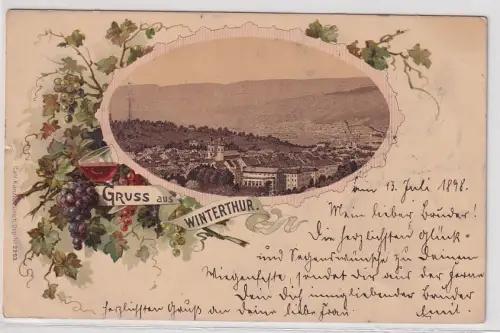 GRUSS aus
WINTERTHUR.
am 13. Juli 1898.
Mein lieber Bruder!
Die herzlichsten Glück-
und Segenswünsche zu Deinem
Wiegenfeste, sendet Dir aus der Ferne
Dein Dich innigliebender Bruder
Emil.
herzlichsten Gruß an Deine liebe Frau.